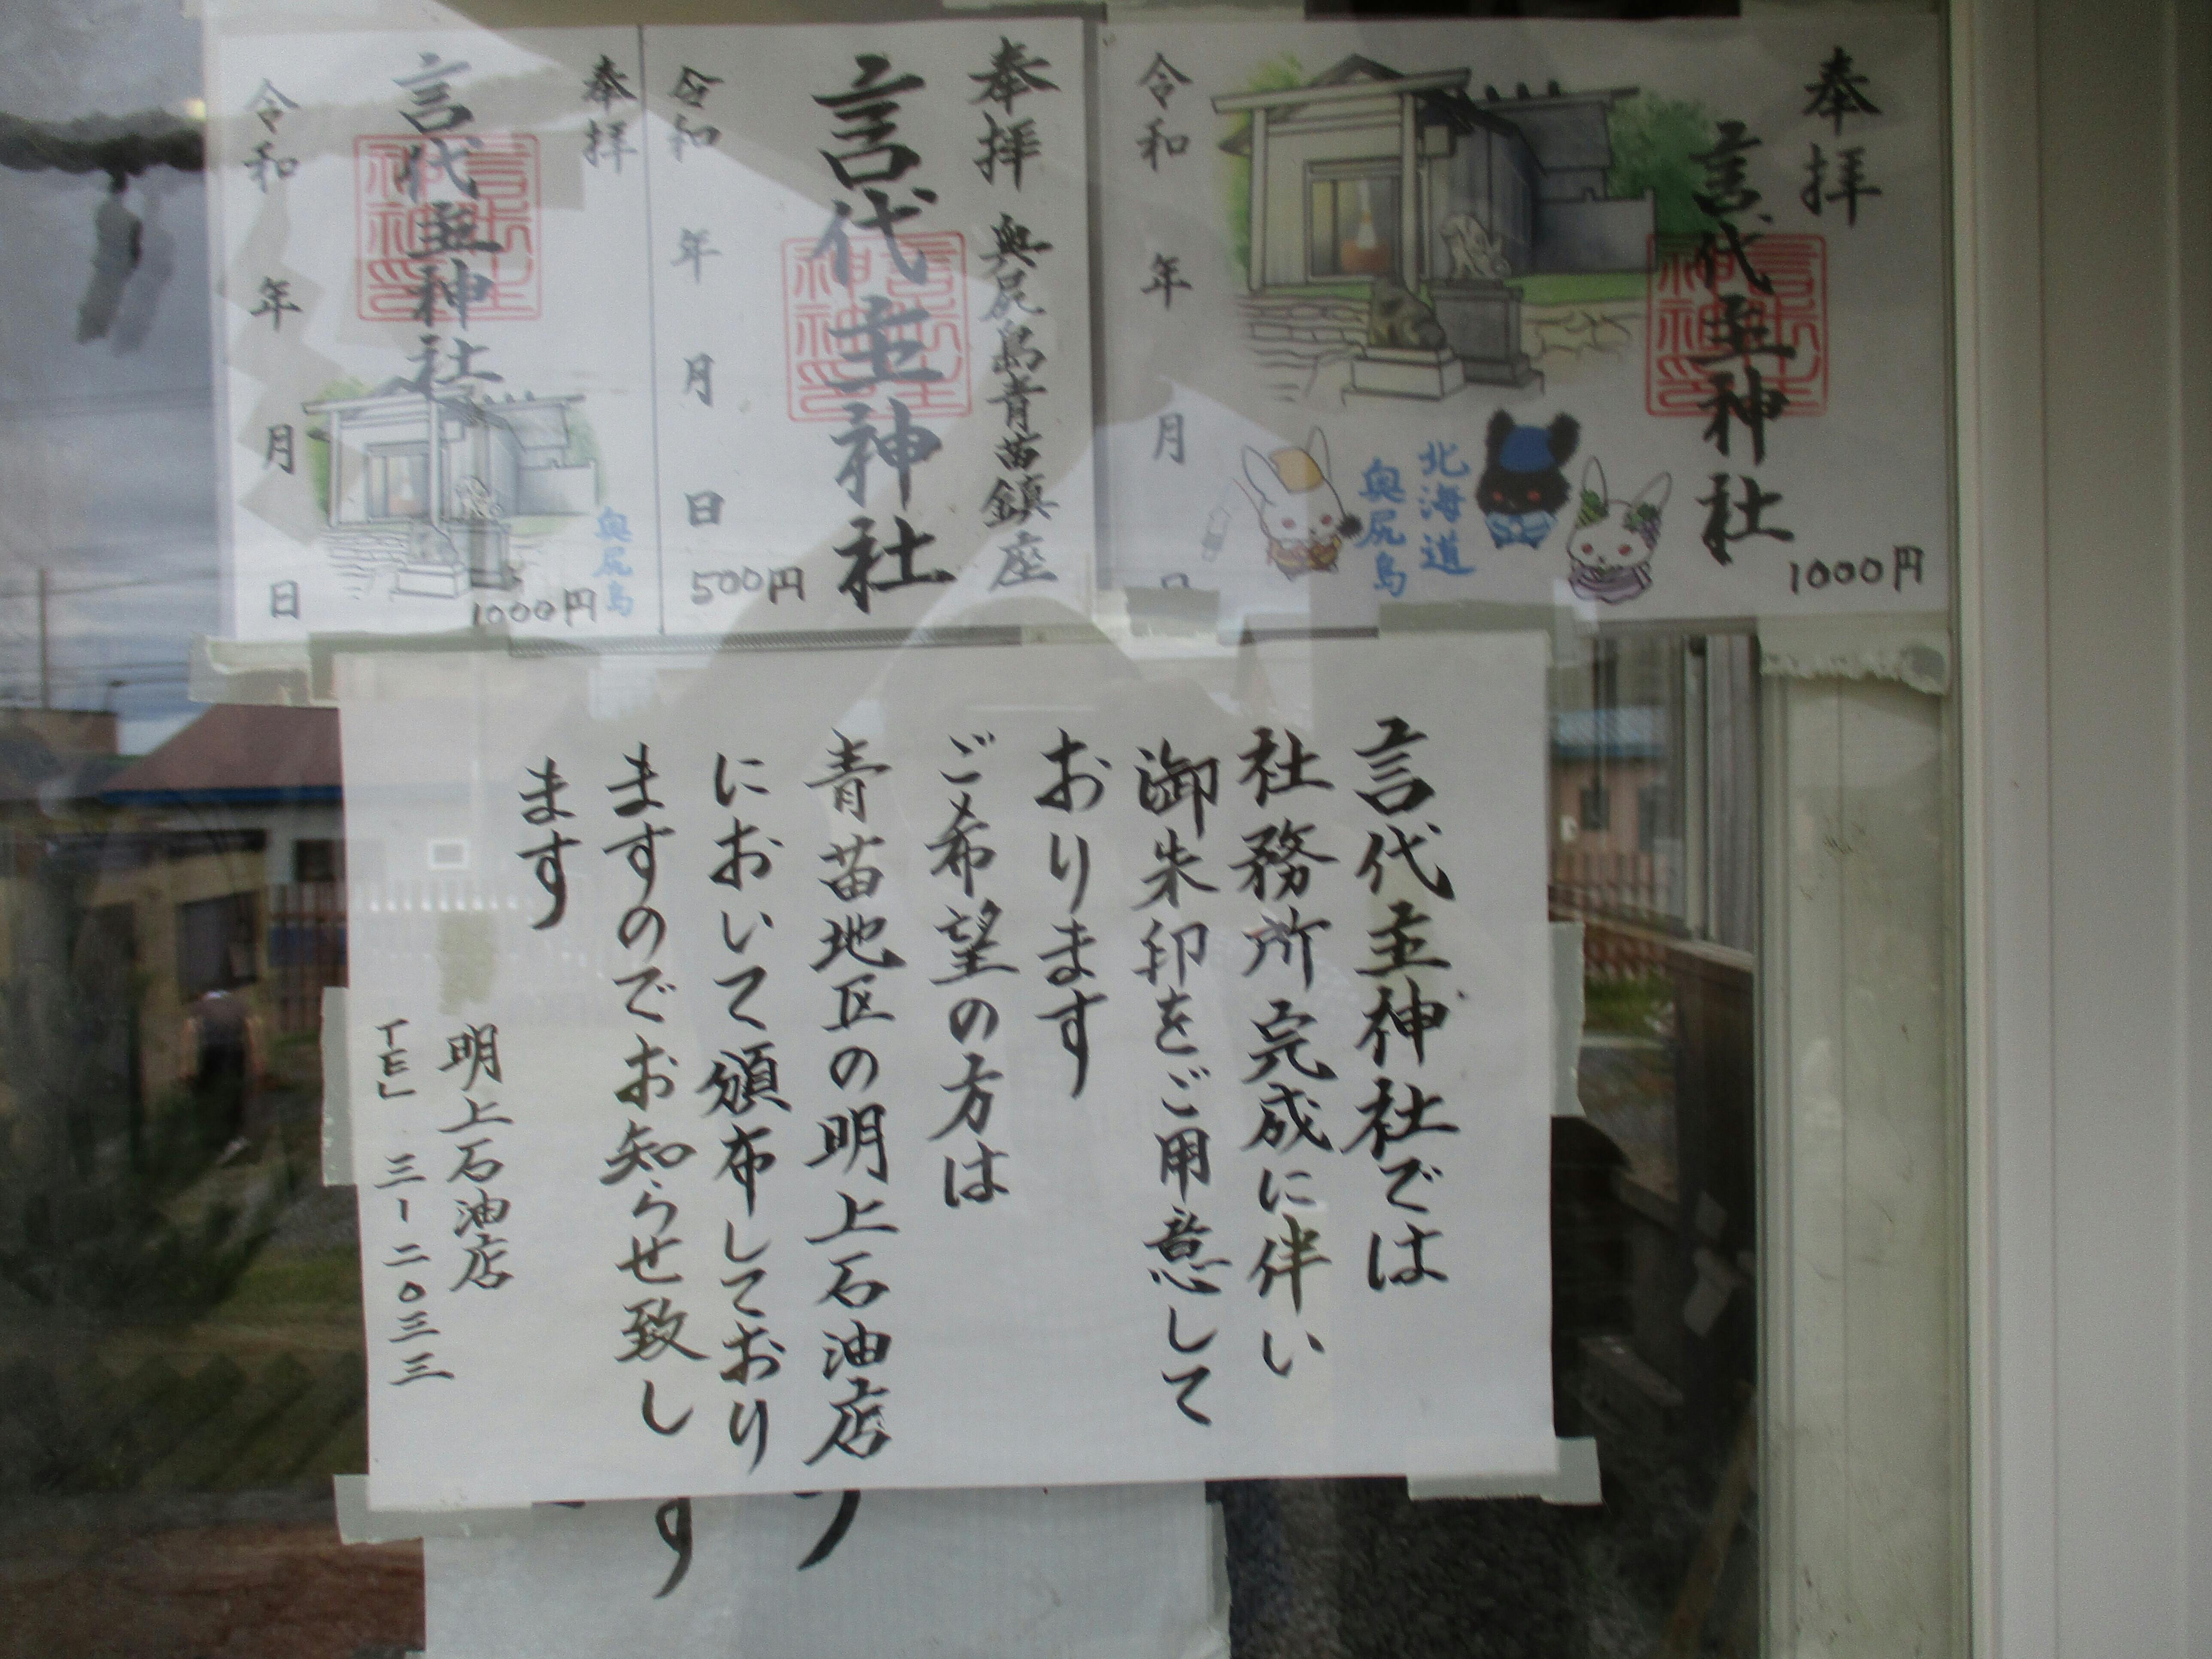 奉拝
言代主神社
北海道
奥尻島
令和 年 月 日
1000円
奉拝 奥尻島青苗鎮座
言代主神社
令和 年 月 日
500円
奉拝
言代主神社
奥尻島
1000円
令和 年 月 日
言代主神社では
社務所完成に伴い
御朱印をご用意して
おります
ご希望の方は
青苗地区の明上石油店
において頒布しており
ますのでお知らせ致し
ます
明上石油店
TEL 三-二〇三三